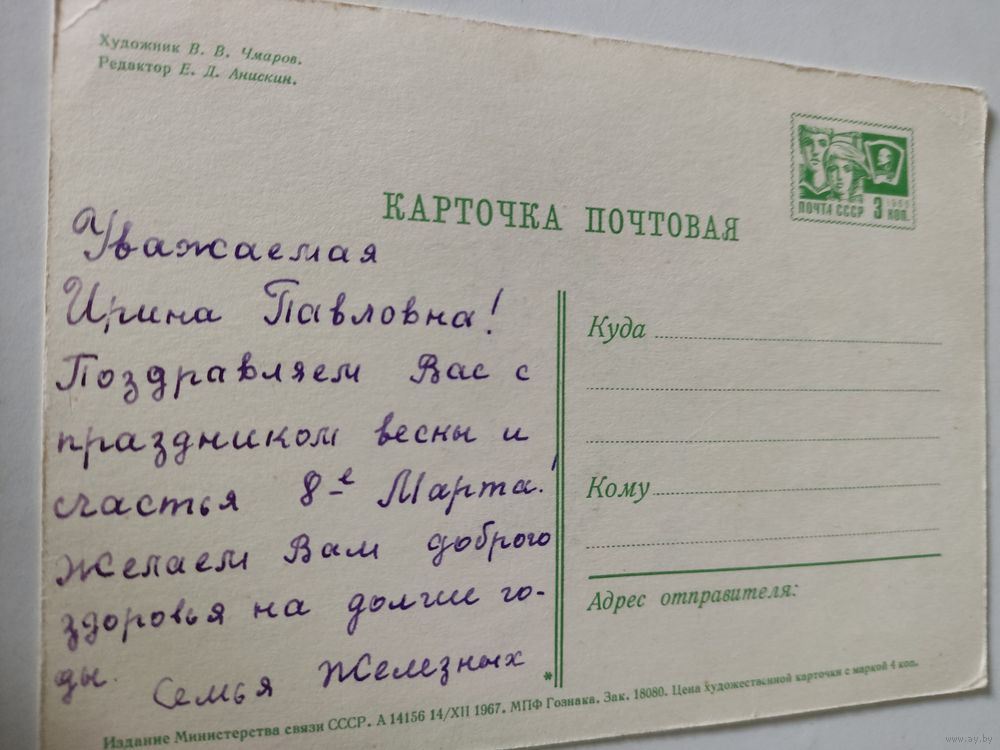 Художник В. В. Чмаров.
Редактор Е. Д. Анискин.
1966
ПОЧТА СССР 3 коп.
КАРТОЧКА ПОЧТОВАЯ
Уважаемая
Ирина Павловна!
Поздравляем Вас с
праздником весны и
счастья 8-е Марта!
Желаем Вам доброго
здоровья на долгие го-
ды. Семья Железных
Куда
Кому
Адрес отправителя:
*
Издание Министерства связи СССР. А 14156 14/XII 1967. МПФ Гознака. Зак. 18080. Цена художественной карточки с маркой 4 коп.
www.ay.by